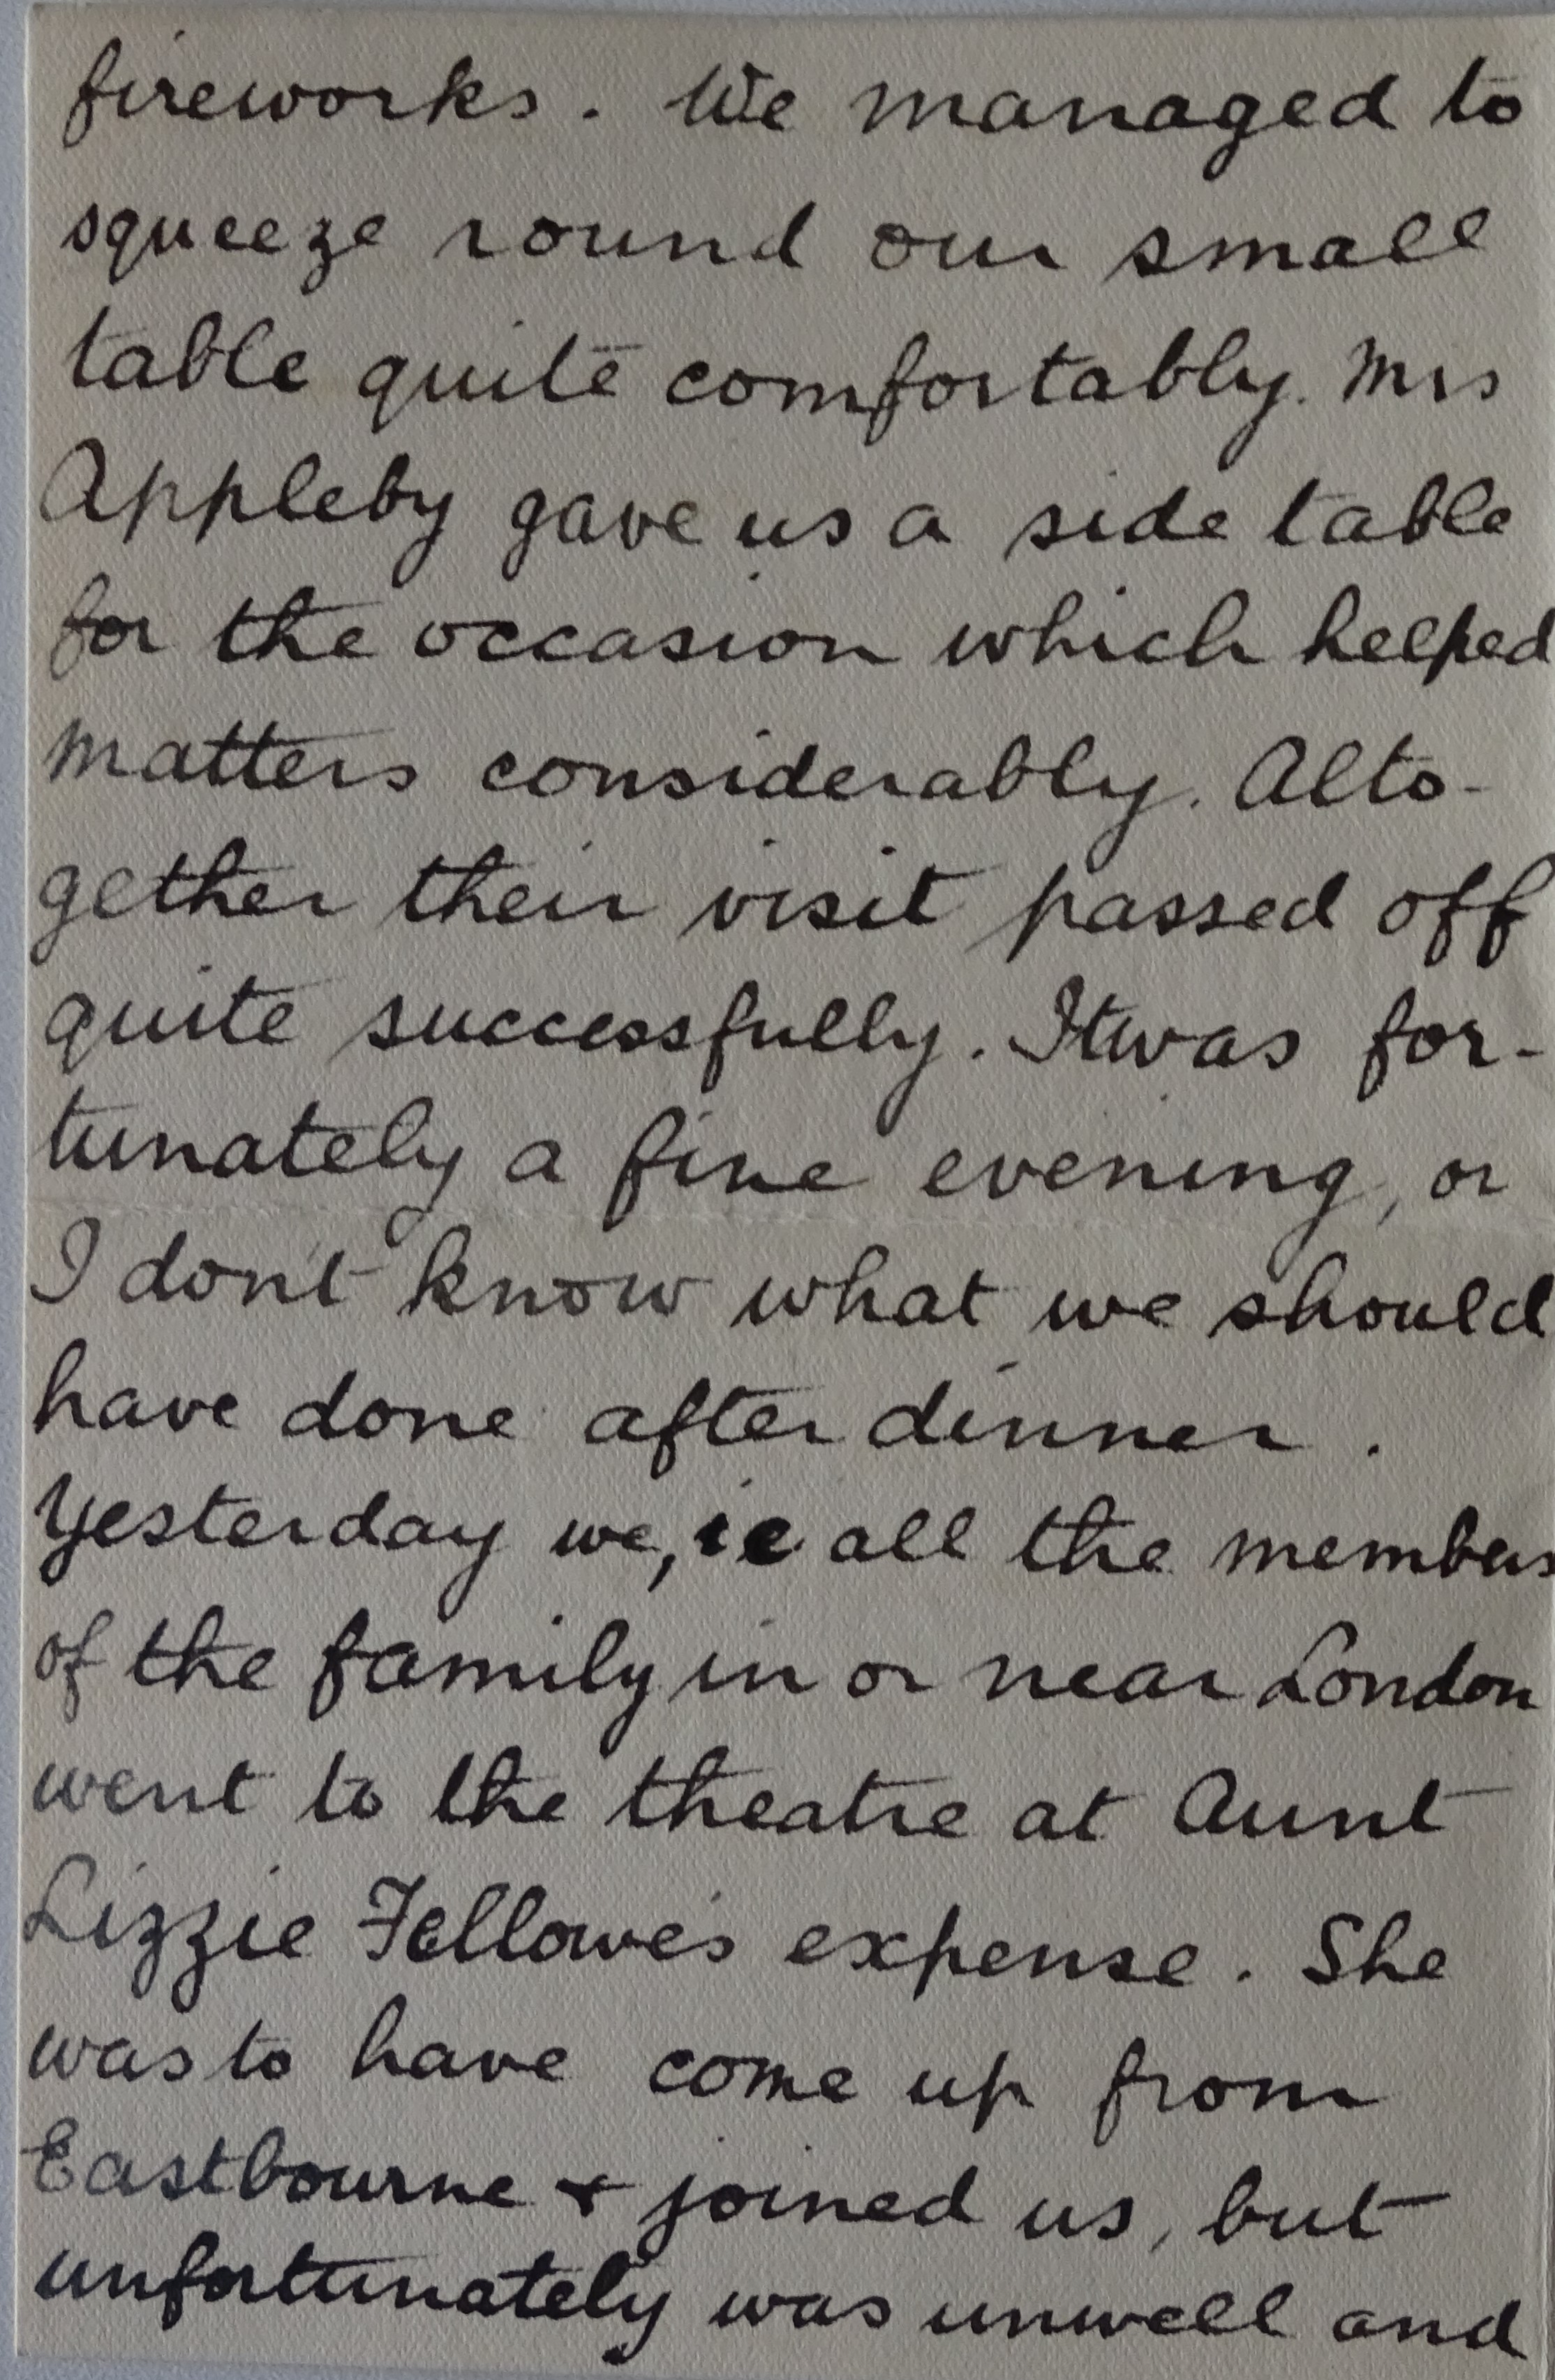 fireworks. We managed to
squeeze round our small
table quite comfortably. Mrs
Appleby gave us a side table
for the occasion which helped
matters considerably. Alto-
gether their visit passed off
quite successfully. It was for-
tunately a fine evening, or
I don't know what we should
have done after dinner.
Yesterday we, ie all the members
of the family in or near London
went to the theatre at Aunt
Lizzie Fellowe's expense. She
was to have come up from
Eastbourne & joined us, but
unfortunately was unwell and